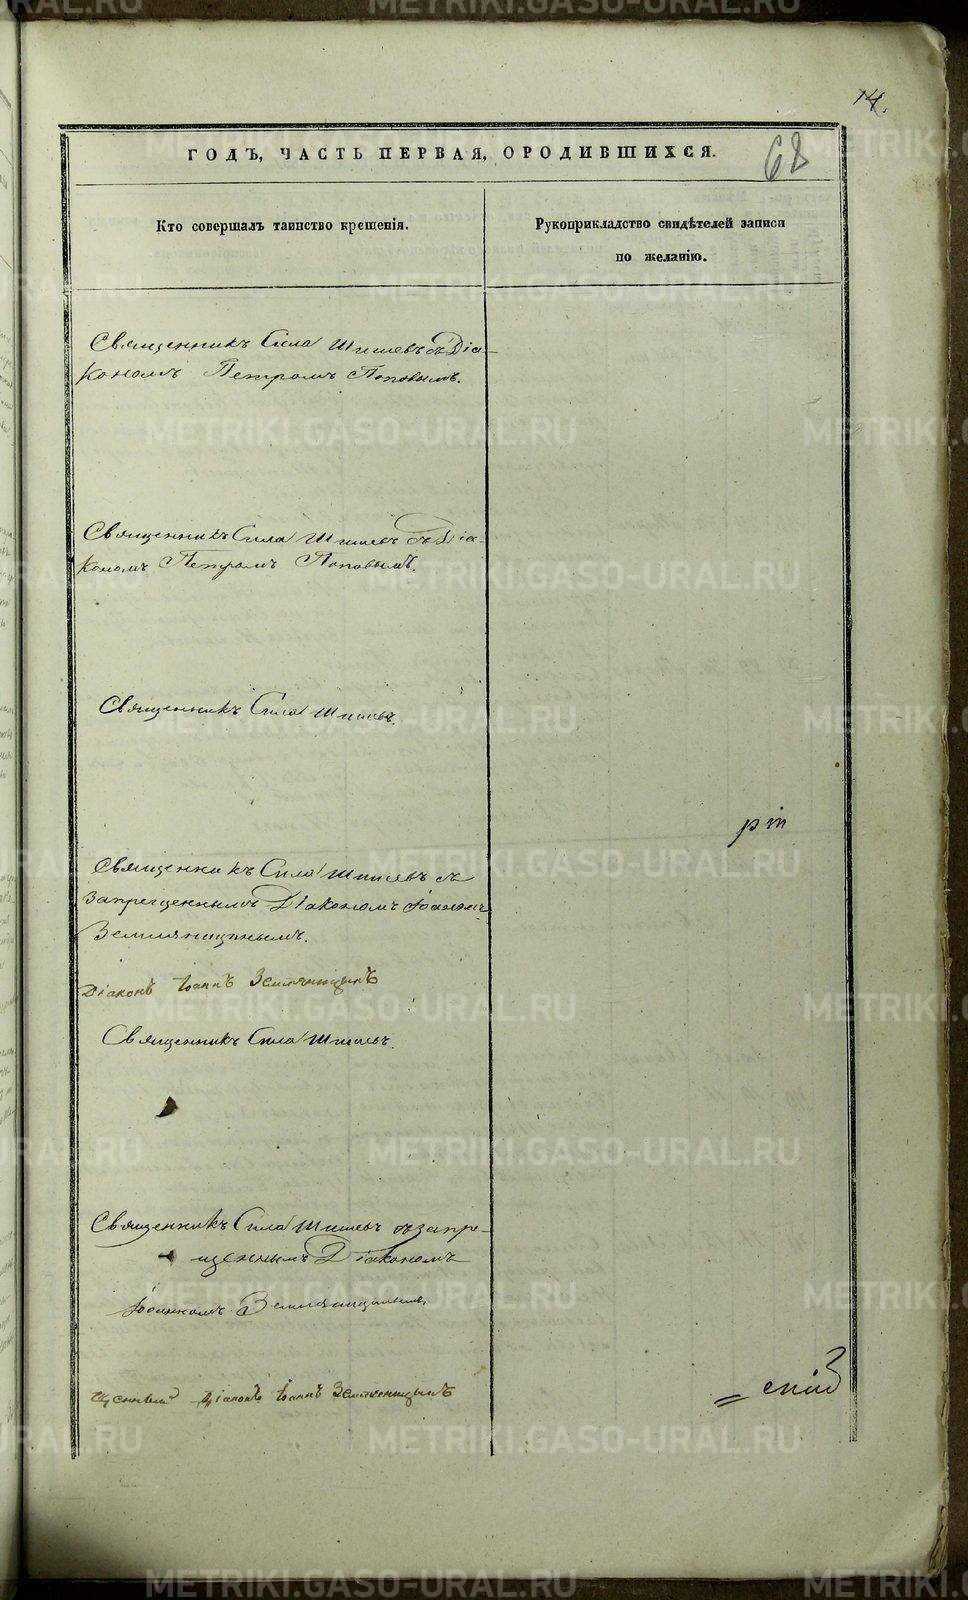 14.
68
ГОДЪ, ЧАСТЬ ПЕРВАЯ, ОРОДИВШИХСЯ.
Кто совершалъ таинство крещенія.
Рукоприкладство свидѣтелей записи
по желанію.
Священникъ Сила Шишевъ съ Діа-
кономъ Петромъ Поповымъ.
Священникъ Сила Шишевъ съ Діа-
кономъ Петромъ Поповымъ.
Священникъ Сила Шишевъ.
рш
Священникъ Сила Шишевъ съ
запрещеннымъ Діакономъ Іоанномъ
Земляницынымъ.
Діаконъ Іоаннъ Земляницынъ
Священникъ Сила Шишевъ.
Священникъ Сила Шишевъ съ запре-
щеннымъ Діакономъ
Іоанномъ Земляницынымъ.
Діаконъ Іоаннъ Земляницынъ
METRIKI.GASO-URAL.RU